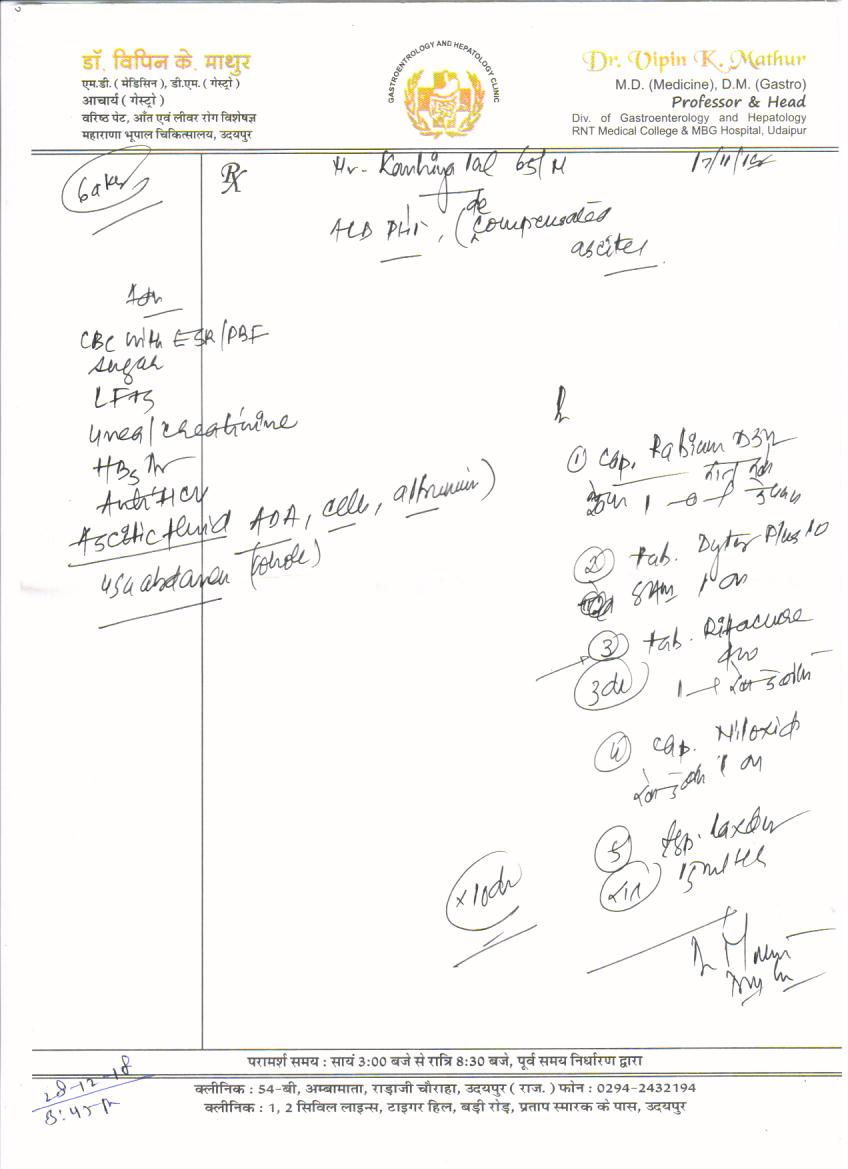 डॉ. विपिन के. माथुर
एम.डी. ( मेडिसिन ), डी.एम. ( गेस्ट्रो )
आचार्य ( गेस्ट्रो )
वरिष्ठ पेट, आँत एवं लीवर रोग विशेषज्ञ
महाराणा भूपाल चिकित्सालय, उदयपुर
GASTROENTROLOGY AND HEPATOLOGY CLINIC
Dr. Vipin K. Mathur
M.D. (Medicine), D.M. (Gastro)
Professor & Head
Div. of Gastroenterology and Hepatology
RNT Medical College & MBG Hospital, Udaipur
Rx
Mr. Kanhiya lal 65/M
17/11/18
ALD PHT, (decompensated
ascites
CBC with ESR/PBF
sugar
LFTs
urea/creatinine
HBs
Anti HCV
Ascitic fluid ADA, cells, albumin)
USG abdomen (whole)
① Cap. Rabium DSR
1
② Tab. Dytor Plus 10
8 AM 1
③ Tab. Rifacure
1
④ Cap.
1
⑤ Syp.
रात 15 ml
x 10
परामर्श समय : सायं 3:00 बजे से रात्रि 8:30 बजे, पूर्व समय निर्धारण द्वारा
28-12-18
क्लीनिक : 54-बी, अम्बामाता, राड़ाजी चौराहा, उदयपुर ( राज. ) फोन : 0294-2432194
क्लीनिक : 1, 2 सिविल लाइन्स, टाइगर हिल, बड़ी रोड़, प्रताप स्मारक के पास, उदयपुर